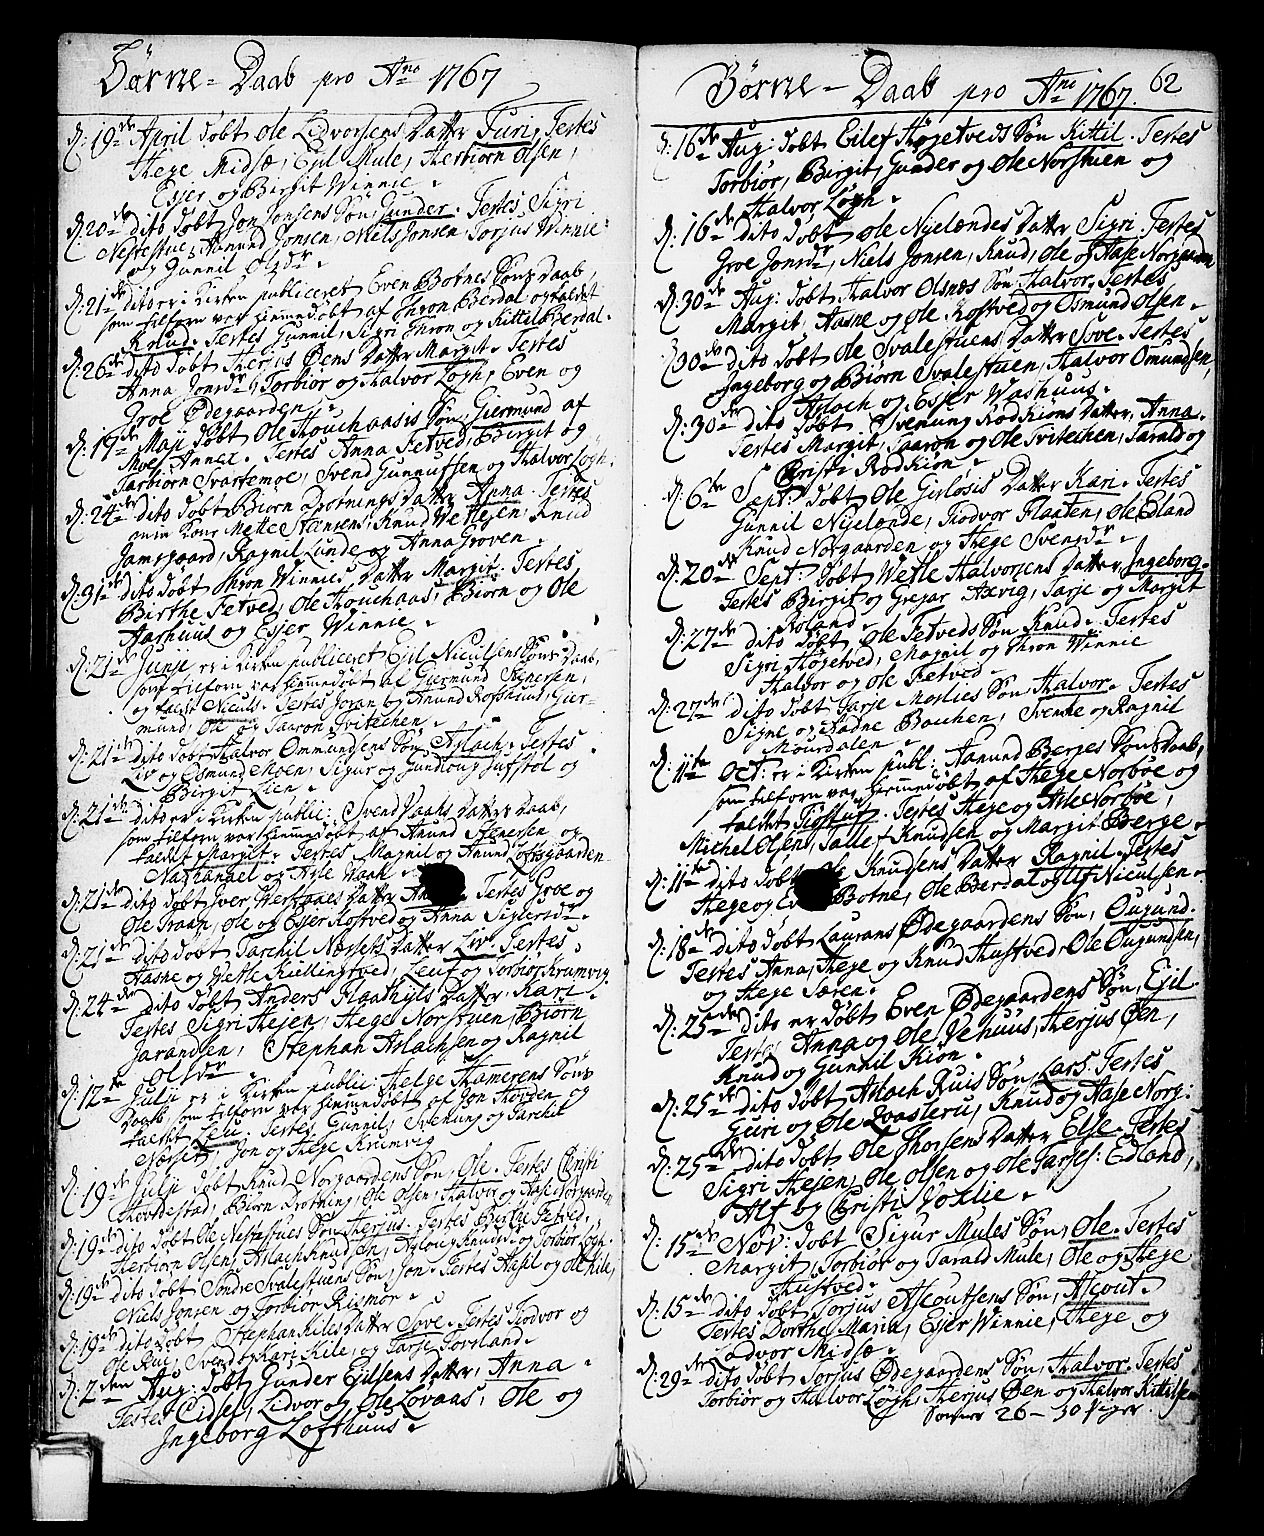 Börne-Daab pro Ano 1767
d: 19de April döbt Ole Lidvorsens Datter Turi. Testes
Hege Midsæ, Ejil Mule, Herbiorn Olsen,
Esjer og Birgit Winnie.
d: 20de dito döbt Jon Jonsens Sön, Gunder. Testes Sigri
Nefrestue, Amund Jonsen, Niels Jonsen Torjus Winnie
og Gunnil Olsdr.
d: 21de dito er i Kirken publiceret Even Botnes Söns Daab,
som tilforn var hiemmedöbt af Thron Berdal og kaldet
Knud. Testes Gunnil, Sigri Thron og Kittil Berdal.
d: 26de dito döbt Therjus Öens Datter Margit. Testes
Anna Jonsdr, Torbiör og Halvor Løgh, Even og
Groe Ödegaarden.
d: 19de Maji döbt Ole Houchaasis Sön, Giermund af
Moes Annex. Testes Anna Fetved, Birgit og
Tarbiorn Svartemoe, Svend Gunnufsen og Halvor Løgh.
d: 24de dito döbt Biorn Drotnings Datter Anna. Testes
min Kone Mette Stansens, Knud Wehejen, Knud
Jamsgaard, Ragnil Lunde og Anna Groven.
d: 31de dito döbt Thron Winnies Datter Margit. Testes
Birthe Fetved, Ole Houchaas, Biorn og Ole
Aarhuus og Esjer Winnie.
d: 21de Junji er i Kirken publiceret Ejil Niculsens Söns Daab,
som tilforn var hiemmedöbt af Giermund Stenersen,
og kaldt Niculs. Testes Joran og Anund Rofshuus, Gier-
mund, Ole og Taaron Tvitechen.
d: 21de dito döbt Halvor Ommundsens Sön Aslach. Testes
Liv og Osmund Moen, Sigur og Gundloug Jufstol og
Birgit Lien.
d: 21de dito er i Kirken public: Svend Vaahs Datters Daab,
som tilforn var hiemmedöbt af Anund Stenersen og
kaldt Margit. Testes Magnil og Anund Loftsgaarden
Nathanael og Asle Vaak.
d: 21de dito döbt Iver Datter Testes Groe og
Ole Traan, Ole og Esjer Rostved og Anna Sigursdr.
d: 21de dito döbt Tarchil Næsets Datter Liv. Testes
Aasne og Wetle Kiellingtved, Leuf og Torbiör Krumvig.
d: 24de dito döbt Anders Flaathyls Datter, Kari.
Testes Sigri Hejen, Hege Norstuen, Biorn
Jarandsen, Stephan Aslachsen og Ragnil
Olsdr.
d: 12te Julji er i Kirken public: Helge Hamerens Söns
Daab som tilforn var hiemmedöbt af Jon Horden, og
kaldet Testes Gunnil, Svenung og Tarchil
Næset, Jon og Hege Krumvig
d: 19de Julji döbt Knud Norgaardens Sön, Ole. Testes Christi
Hovdestad, Biorn Drotning, Ole Olsen, Halvor og Aase Norgaarden
d: 19de dito döbt Ole Nefrestues Sön Therjus. Testes Birthe Fetved,
Herbiorn Olsen, Aslach Knudsen, Aslou Knudsdr og Torbiör Løgh.
d: 19de dito döbt Söndre Svalestuens Sön, Jon. Testes Hasil og Ole Kile,
Niels Jonsen og Torbiör Rismor.
d: 19de dito döbt Stephan Kiles Datter Sove. Testes Tiodvor og
Ole Rue, Svend og Kari Kile, og Tarje Torvland.
d: 2den Aug: döbt Gunder Ejilsens Datter, Anna.
Testes Eidsef, Lidvor og Ole Lovaas, Ole og
Ingeborg Lofthuus.
Börne-Daab pro Ano 1767. 62
d: 16de Aug: döbt Eilef Högetveds Sön Kittil. Testes
Torbiör, Birgit, Gunder og Ole Norstuen og
Halvor Løgh.
d: 16de dito döbt Ole Nijelændes Datter Sigri. Testes
Groe Jonsdr, Niels Jonsen, Knud, Ole og Aase Norgaarden
d: 30de Aug: döbt Halvor Olsnæs Sön Halvor. Testes
Margit, Aasne og Ole Rostved og Osmund Olsen.
d: 30de dito döbt Ole Svalestuens Datter Sove. Testes
Ingeborg og Biörn Svalestuen, Halvor Omundsen,
Aslach og Esjer Washuus.
d: 30de dito döbt Svenung Rodkions Datter, Anna.
Testes Margit, Taaron og Ole Tvitechen, Tarald og
Christi Rodkion.
d: 6te Sept: döbt Ole Girlosis Datter Kari. Testes
Gunnil Nijelænde, Tiodvor Flaaten, Ole Edland
Knud Norgaarden og Hege Svensdr.
d: 20de Sept: döbt Wetle Halvorsens Datter, Ingeborg.
Testes Birgit og Gregar Axvig, Tarje og Margit
Roland.
d: 27de dito döbt Ole Fetveds Sön Knud. Testes
Sigri Högetved, Magnil og Thron Winnie
Halvor og Ole Fetved.
d: 27de dito döbt Tarje Moslies Sön Halvor. Testes
Signe og Aadne Bauhen, Svenke og Ragnil
Mourdalen.
d: 11te Oct: er i Kirken publ: Aanund Berges Söns Daab,
som tilforn var hiemmedöbt af Hege Norböe og
kaldet Tiostulf. Testes Hege og Asle Norböe,
Michel Olsen, Tallef Knudsen og Margit Berge.
d: 11te dito döbt Knudsens Datter Ragnil. Testes
Hege og Botne, Ole Berdal og Ulf Niculsen.
d: 18de dito döbt Laurans Ödegaardens Sön, Ougund.
Testes Anna, Hege og Knud Hustved, Ole Ougundsen,
og Hege Særen.
d: 25de dito er döbt Even Ödegaardens Sön, Ejil.
Testes Anna og Ole Vehuus, Therjus Öen,
Knud og Gunnil Kion.
d: 25de dito döbt Aslach Ruis Sön, Lars. Testes
Guri og Ole Qvasteru, Knud og Aase Norg:
d: 25de dito döbt Ole Thorsens Datter Else. Testes
Sigri Hejen, Ole Olsen og Ole Tarjes: Edland,
Alf og Christi Voxlie.
d: 15de Nov: döbt Sigur Mules Sön, Ole. Testes
Margit, Torbiör og Tarald Mule, Ole og Hege
Hustved.
d: 15de dito döbt Torjus Ascoutsens Sön, Ascout.
Testes Dorthe Maria, Esjer Winnie, Hege og
Lodvor Midsæ.
d: 29de dito döbt Torjus Ödegaardens Sön, Halvor. Testes
Torbiör og Halvor Løgh, Therjus Öen og Halvor Kittilsen
Sönner 26 - 30 Piger.